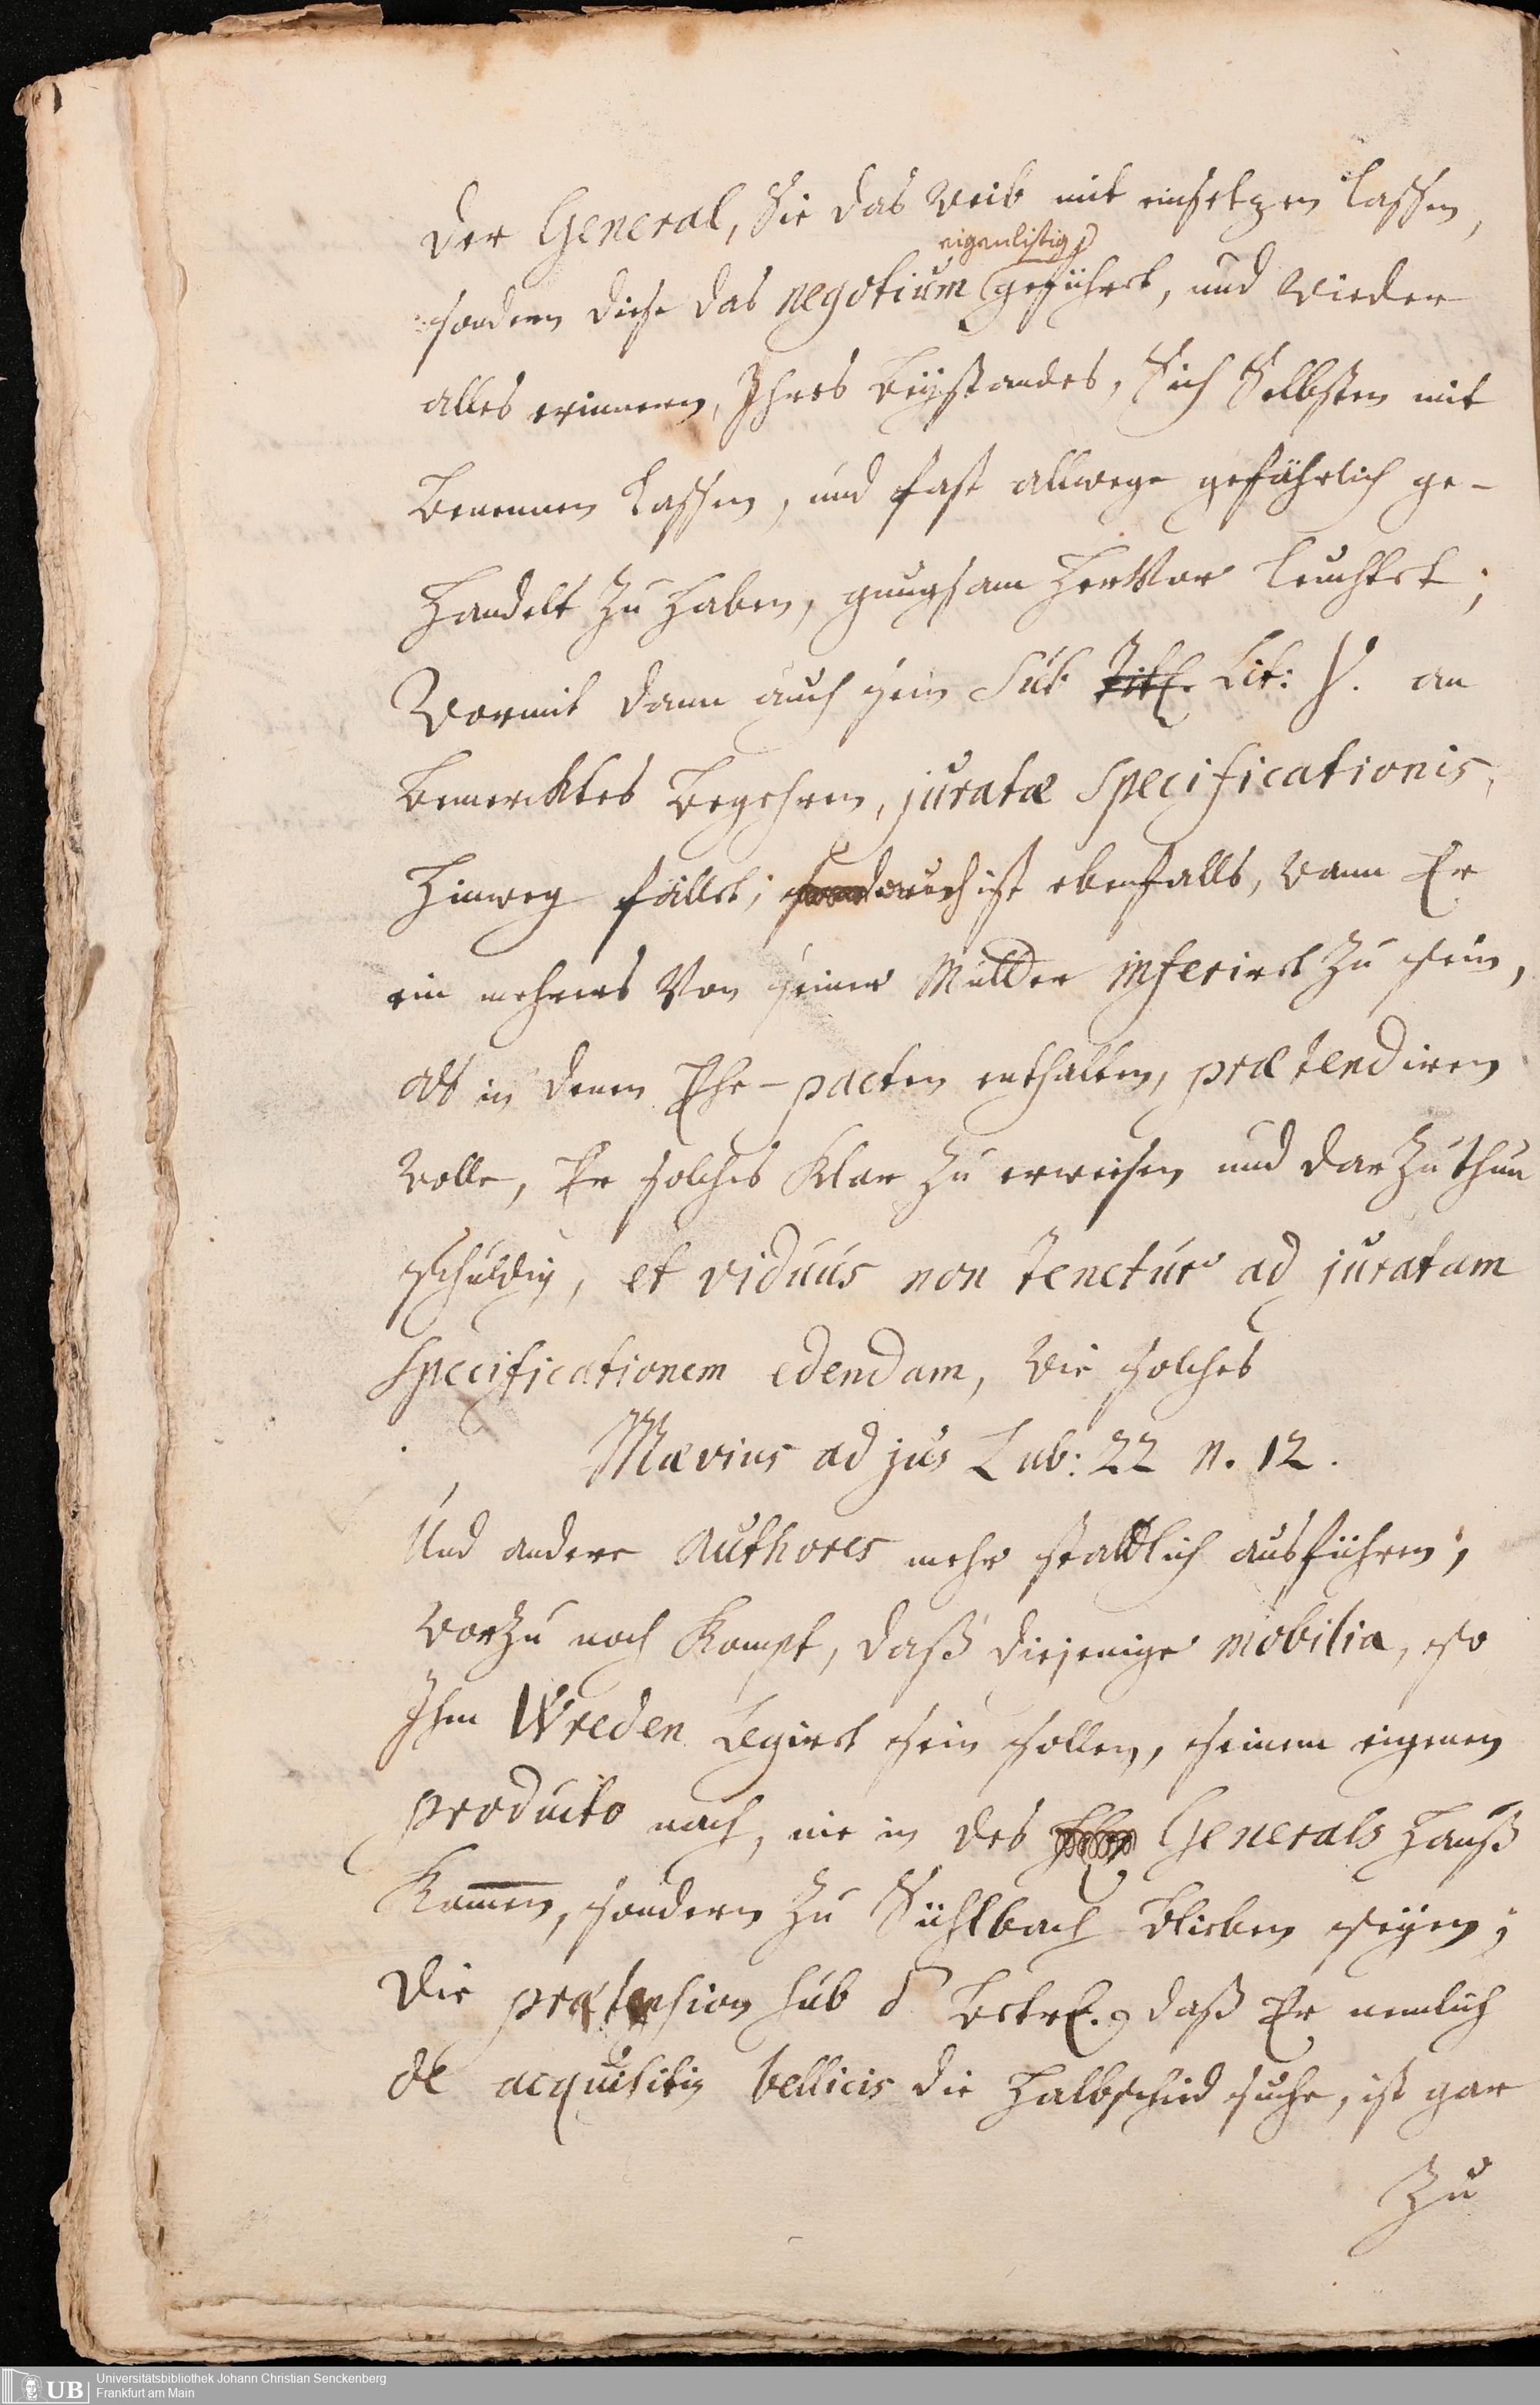 der General, Sie das Weib mit einsetzen lassen,
eigenlistig
sondern diese das negotium geführet, und wieder
alles erinnern, Ihres Beystandes, Sich Selbsten mit
benennen lassen, und fast allwege gefährlich ge-
handelt zu haben, gnugsam hervor leuchtet;
Wormit dann auch sein sub Lit: an
bemercktes Begehren, juratæ Specificationis,
hinweg fället; auch ist ebenfalls, wann Er
ein mehrers Von seiner Mutter inferirt zu sein,
als in denen Ehe-pacten enthalten, prætendiren
wolle, Er solches klar zu erweisen und darzuthun
schuldig, et viduus non tenetur ad juratam
specificationem edendam, wie solches
Mævius ad jus Lub: 22 n. 12.
Und andere authores mehr stattlich ausführen;
Worzu noch kompt, daß diejenige mobilia, so
Ihm Wreden legirt sein sollen, seinem eigenen
producto nach, nie in des Generals Hauß
kommen, sondern zu Sühlbach blieben seyen;
Die prætension sub betref. daß Er nemlich
de acquisitis bellicis die Halbschied suche, ist gar
Zu
UB Universitätsbibliothek Johann Christian Senckenberg
Frankfurt am Main